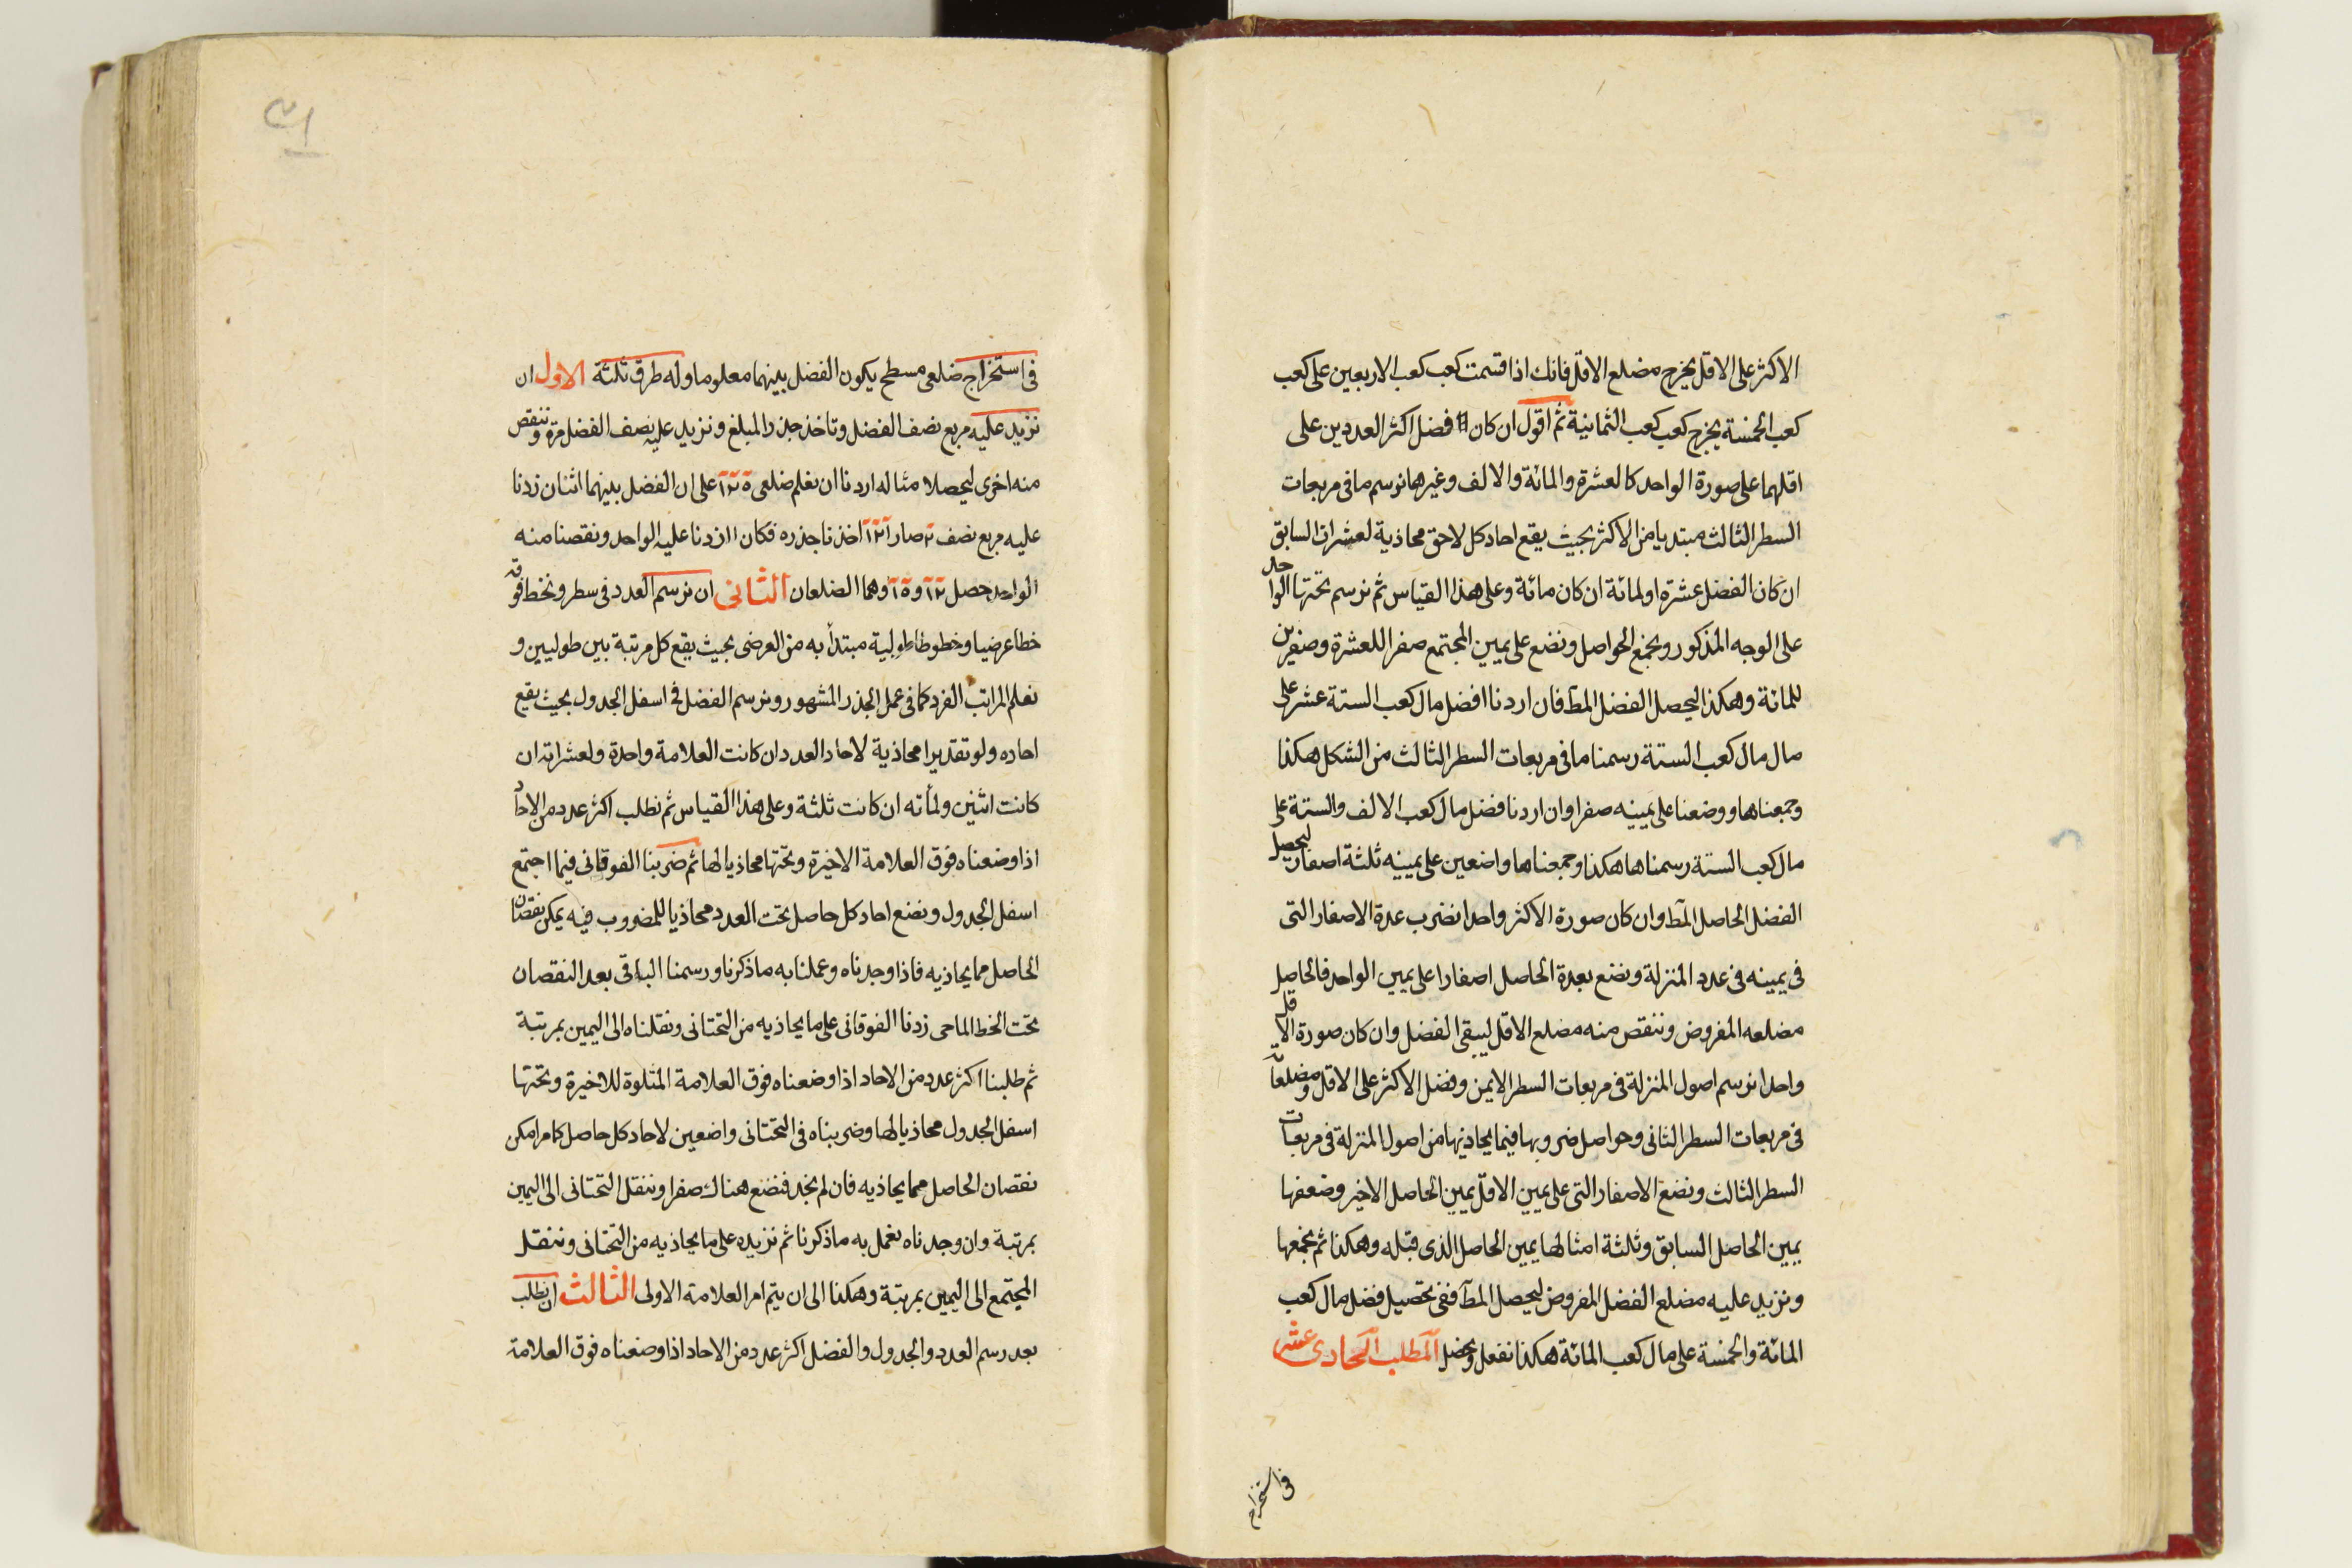 الاكثر على الاقل يخرج مضلع الاقل فانك اذا قسمت كعب كعب كعب الاربعين على كعب
كعب الخمسة يخرج كعب كعب كعب الثمانية ثم اقول ان كان فضل اكثر العددين على
اقلهما على صورة الواحد كالعشرة والمائة والالف وغيرها نرسم ما فى مربعات
السطر الثالث مبتديا من الاكثر بحيث يقع احاد كل لاحق محاذية لعشرات السابق
ان كان الفضل عشرة او لمائة ان كان مائة وعلى هذا القياس ثم نرسم تحتها الواحد
على الوجه المذكور ونجمع الحواصل ونضع على يمين المجتمع صفرا للعشرة وصفرين
للمائة وهكذا ليحصل الفضل المط فان اردنا افضل مال كعب الستة عشر على
مال مال كعب الستة رسمنا ما فى مربعات السطر الثالث من الشكل هكذا
وجمعناها ووضعنا على يمينه صفرا وان اردنا فضل مال كعب الالف والستة على
مال كعب الستة رسمناها هكذا وجمعناها واضعين على يمينه ثلثة اصفار ليحصل
الفضل الحاصل المط وان كان صورة الاكثر واحدا نضرب عدة الاصفار التى
فى يمينه فى عدد المنزلة ونضع بعدة الحاصل اصفارا على يمين الواحد فالحاصل
مضلعه المفروض وننقص منه مضلع الاقل ليبقى الفضل وان كان صورة الاقل
واحدا نرسم اصول المنزلة فى مربعات السطر الايمن وفضل الاكثر على الاقل ومضلعاته
فى مربعات السطر الثانى وحواصل ضروبها فيما يحاذيها من اصول المنزلة فى مربعات
السطر الثالث ونضع الاصفار التى على يمين الاقل يمين الحاصل الاخير وضعفها
يمين الحاصل السابق وثلثة امثالها يمين الحاصل الذى قبله وهكذا ثم نجمعها
ونزيد عليه مضلع الفضل المفروض ليحصل المط ففى تحصيل فضل مال كعب
المائة والخمسة على مال كعب المائة هكذا نفعل ويحصل المطلب الحادى عشر
فى استخراج
٣١
فى استخراج ضلعى مسطح يكون الفضل بينهما معلوما وله طرق ثلثة الاول ان
نزيد عليه مربع نصف الفضل وتاخذ جذر المبلغ ونزيد عليه نصف الفضل مرة وننقص
منه اخرى ليحصلا مثاله اردنا ان نعلم ضلعى على ان الفضل بينهما اثنان زدنا
عليه مربع نصف ٢ صار اخذنا جذره فكان ١١ زدنا عليه الواحد ونقصنا منه
الواحد حصل ١٢ و وهما الضلعان الثانى ان نرسم العدد فى سطر ونخط فوقه
خطا عرضيا وخطوطا طولية مبتدأ به من العرضى بحيث يقع كل مرتبة بين طوليين و
نعلم المراتب الفرد كما فى عمل الجذر المشهور ونرسم الفضل فى اسفل الجدول بحيث يقع
احاده ولو تقديرا محاذية لاحاد العدد ان كانت العلامة واحدة ولعشراته ان
كانت اثنين ولمأته ان كانت ثلثة وعلى هذا القياس ثم نطلب اكثر عدد من الاحاد
اذا وضعناه فوق العلامة الاخيرة وتحتها محاذيا لها ثم ضربنا الفوقانى فيما اجتمع
اسفل الجدول ونضع احاد كل حاصل تحت العدد محاذيا للمضروب فيه يمكن نقصان
الحاصل مما يحاذيه فاذا وجدناه وعملنا به ما ذكرنا ورسمنا الباقى بعد النقصان
تحت الخط الماحى زدنا الفوقانى على ما يحاذيه من التحتانى ونقلناه الى اليمين بمرتبة
ثم طلبنا اكثر عدد من الاحاد اذا وضعناه فوق العلامة المتلوة للاخيرة وتحتها
اسفل الجدول محاذيا لها وضربناه فى التحتانى واضعين لاحاد كل حاصل كما مر امكن
نقصان الحاصل مما يحاذيه فان لم نجد فنضع هناك صفرا وننقل التحتانى الى اليمين
بمرتبة وان وجدناه نعمل به ما ذكرنا ثم نزيده على ما يحاذيه من التحتانى وننقل
المجتمع الى اليمين بمرتبة وهكذا الى ان يتم امر العلامة الاولى الثالث ان نطلب
بعد رسم العدد والجدول والفضل اكثر عدد من الاحاد اذا وضعناه فوق العلامة